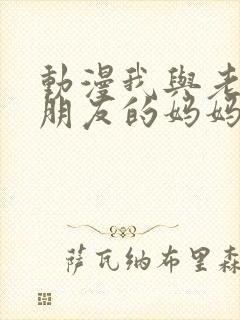 動漫我與老
朋友的妈妈
萨瓦纳布里森